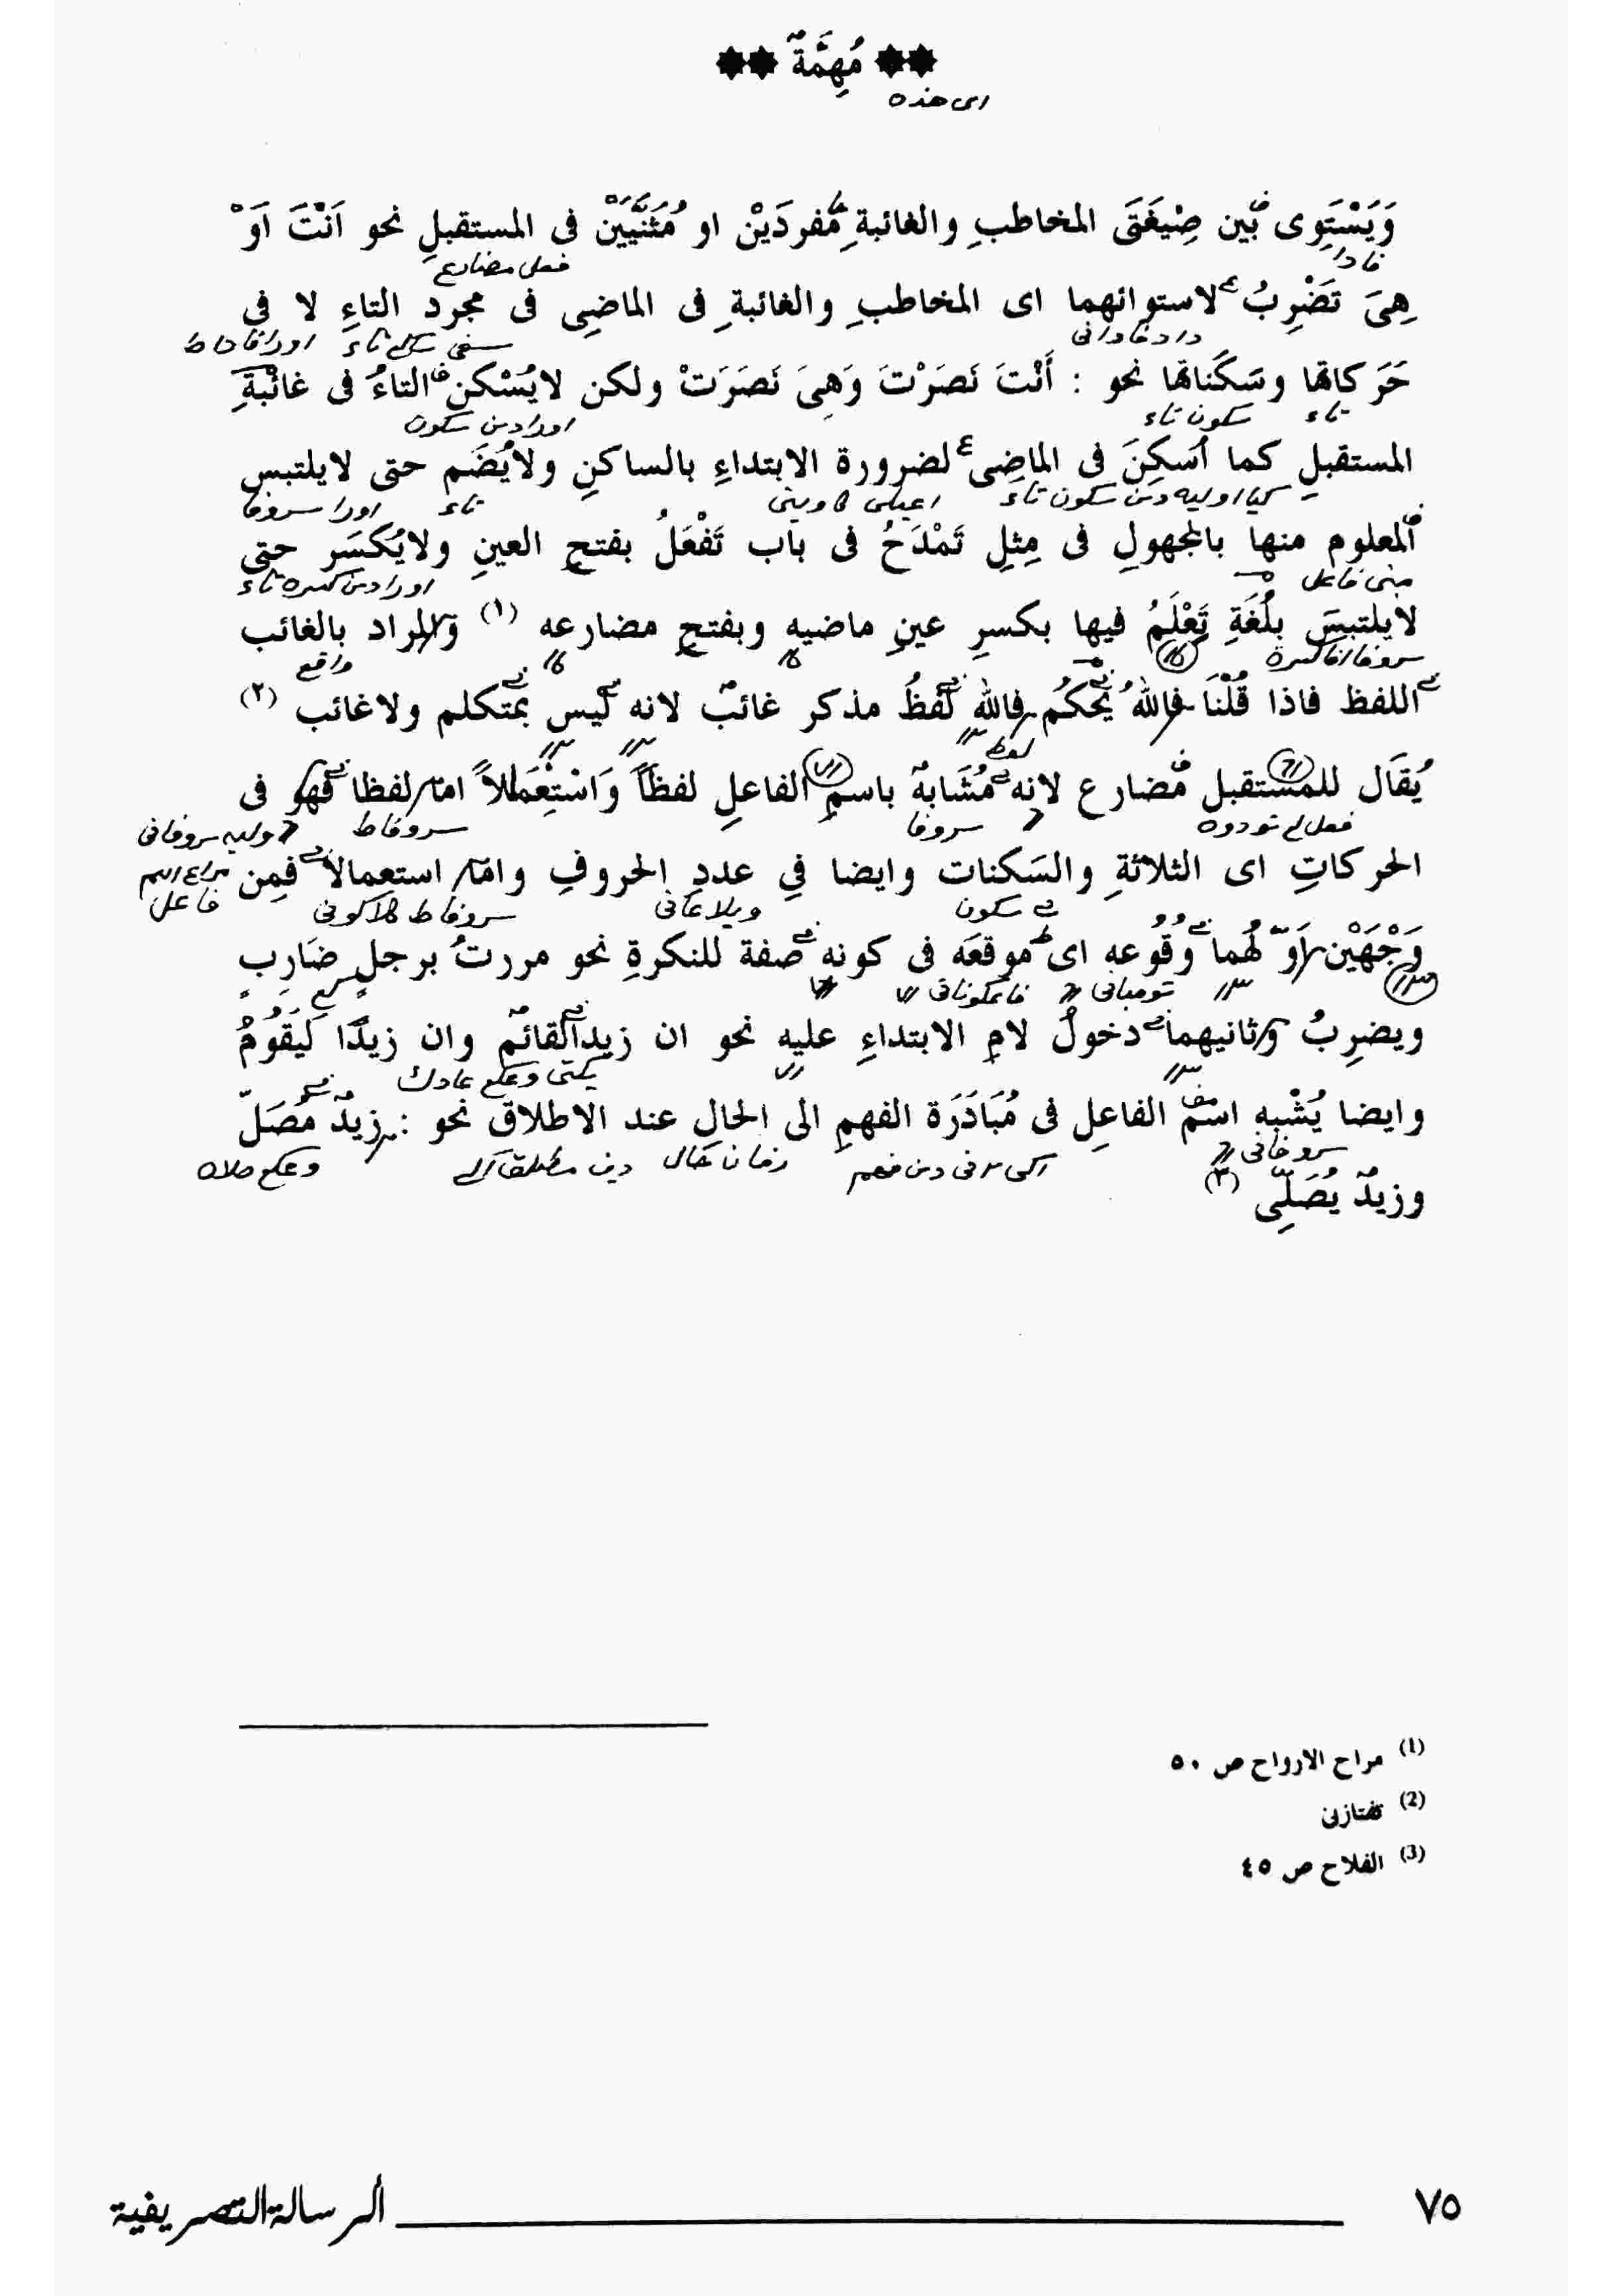 مُهِمَّةٌ
اى هذه
وَيَسْتَوِى بين صِيْغَتَى المخاطبِ والغائبةِ مُفردَيْن او مُثَنَّيَيْن فى المستقبلِ نحو اَنْتَ اَوْ
فادا
فعل مضارع
هِىَ تَضْرِبُ لاستوائهما اى المخاطبِ والغائبةِ فى الماضِى فى مجردِ التاءِ لا فى
حَرَكاتها وسَكَناتها نحو : أَنْتَ نَصَرْتَ وَهِىَ نَصَرَتْ ولكن لايُسْكن التاءُ فى غائبةِ
تاء
سكون تاء
اورا دين سكون
المستقبلِ كما أُسْكِنَ فى الماضِى لضرورة الابتداءِ بالساكنِ ولايُضَم حتى لايلتبس
تاء
اورا سروفا
المعلوم منها بالمجهولِ فى مِثلِ تَمْدَحُ فى باب تَفْعَلُ بفتحِ العينِ ولايُكسَر حتى
مبنى فاعل
اورا دين كسره تاء
لايلتبسَ بِلُغَةِ تِعْلَمُ فيها بكسرِ عينِ ماضيهِ وبفتحِ مضارعه (١) والمراد بالغائب
واقع
اللفظ فاذا قُلْنَا فاللهُ يَحْكُم فاللهِ لفظُ مذكر غائبٌ لانه ليس بمتكلم ولاغائب (٢)
لفظ
يُقَال للمستقبل مُضارع لانه مُشَابهٌ باسمِ الفاعلِ لفظاً وَاسْتِعْمَالاً امّا لفظا فهو فى
سروفا
سروفاط
الحركاتِ اى الثلاثةِ والسَكنات وايضا فِى عددِ الحروفِ وامّا استعمالا فمِن
سكون
فاعل
وَجْهَيْن اَوّلُهُما وُقُوعه اى موقعَه فى كونه صفة للنكرةِ نحو مررتُ برجلٍ ضَارِبٍ
ويضرِبُ وثانيهما دخولُ لامِ الابتداءِ عليهِ نحو ان زيدا لقائمٌ وان زيدًا لَيَقُومُ
وايضا يُشْبِه اسْمَ الفاعِلِ فى مُبَادَرَة الفهمِ الى الحالِ عند الاطلاق نحو : زيدٌ مُصَلّ
زمان حال
وزيدٌ يُصَلِّى (٣)
(1) مراح الارواح ص ٥٠
(2) تفتازنى
(3) الفلاح ص ٤٥
ألرسالة التصريفية
٧٥